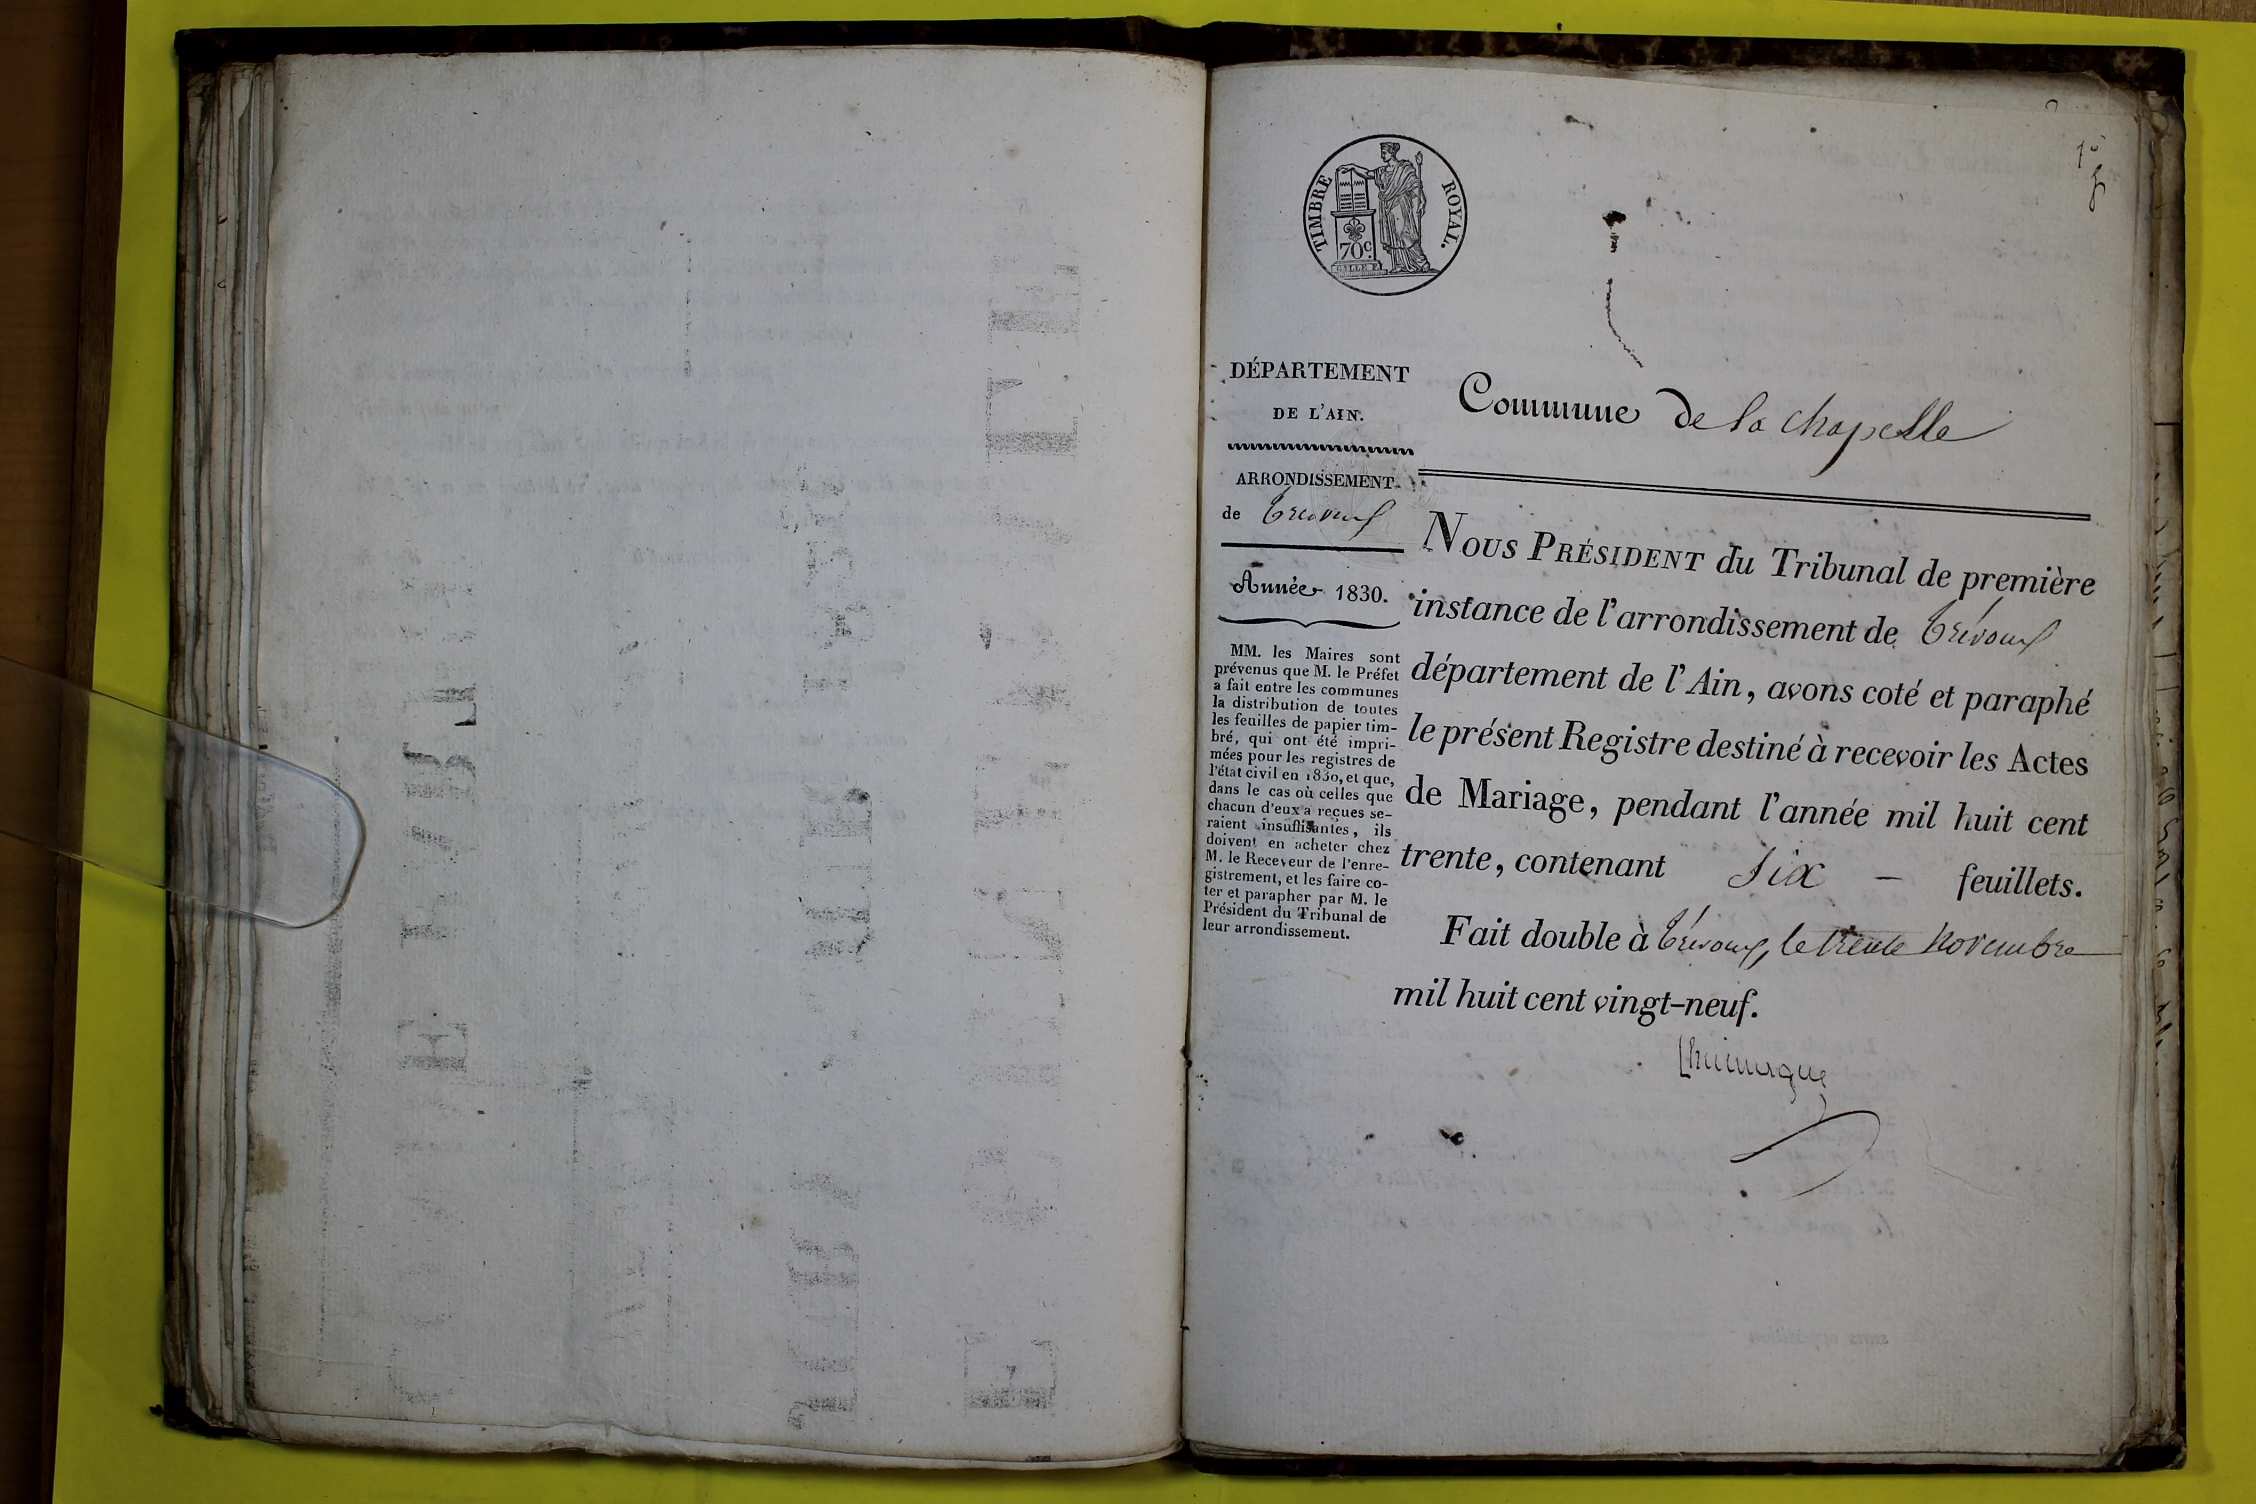 1er
TIMBRE ROYAL.
70c.
DÉPARTEMENT
DE L'AIN.
Commune de la chapelle
ARRONDISSEMENT
de Trévoux
Année 1830.
MM. les Maires sont
prévenus que M. le Préfet
a fait entre les communes
la distribution de toutes
les feuilles de papier tim-
bré, qui ont été impri-
mées pour les registres de
l'état civil en 1830, et que,
dans le cas où celles que
chacun d'eux a reçues se-
raient insuffisantes, ils
doivent en acheter chez
M. le Receveur de l'enre-
gistrement, et les faire co-
ter et parapher par M. le
Président du Tribunal de
leur arrondissement.
NOUS PRÉSIDENT du Tribunal de première
instance de l'arrondissement de Trévoux
département de l'Ain, avons coté et paraphé
le présent Registre destiné à recevoir les Actes
de Mariage, pendant l'année mil huit cent
trente, contenant Six – feuillets.
Fait double à Trévoux, le trente Novembre
mil huit cent vingt-neuf.